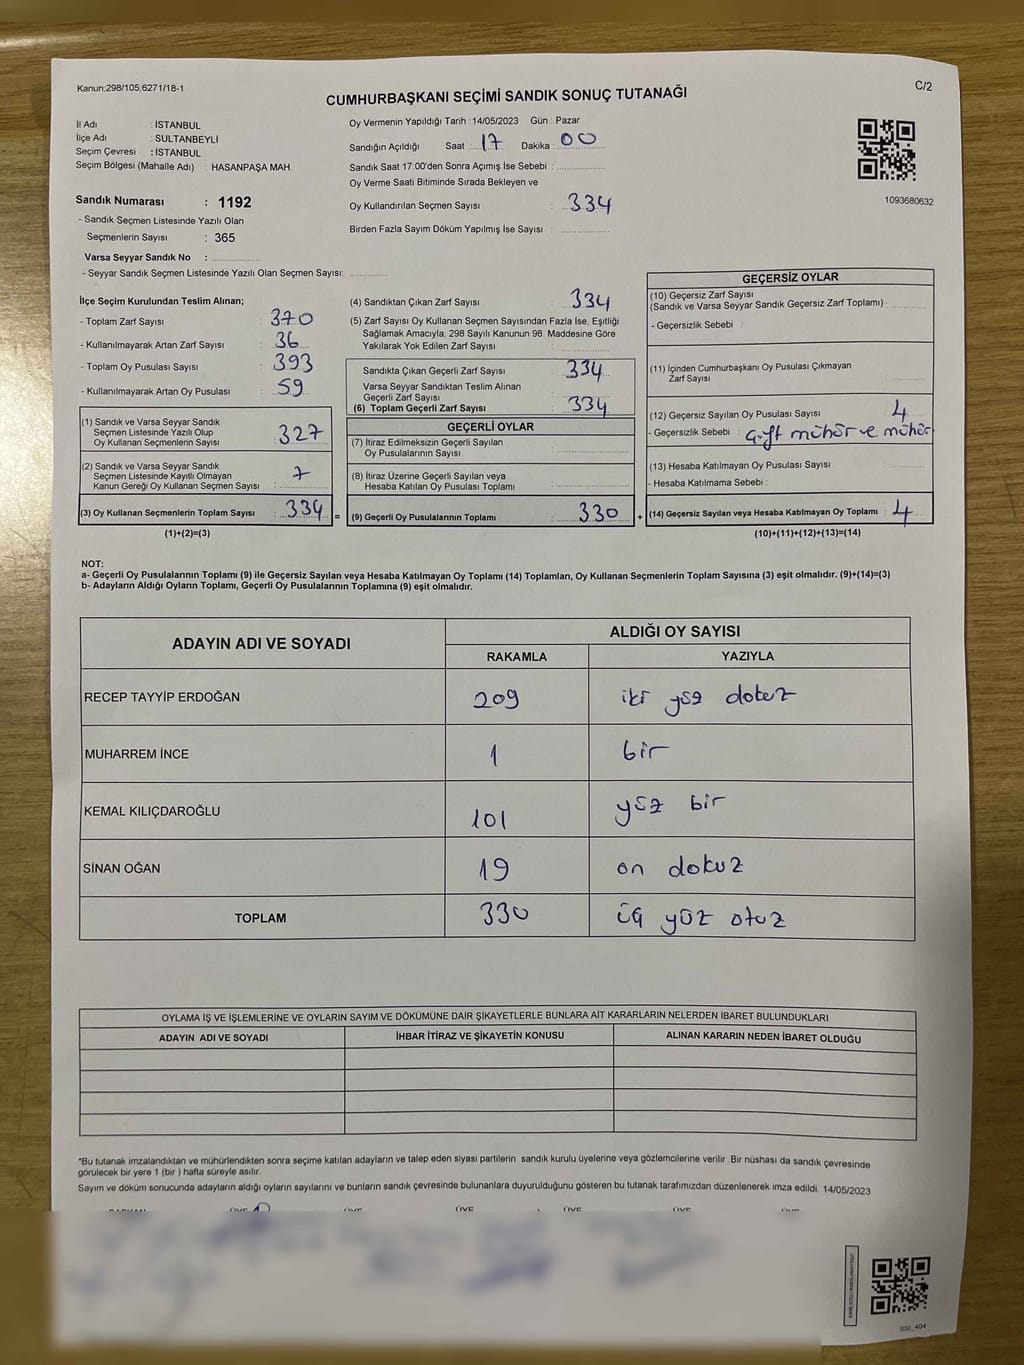 Kanun;298/105;6271/18-1
C/2
CUMHURBAŞKANI SEÇİMİ SANDIK SONUÇ TUTANAĞI
İl Adı : İSTANBUL
İlçe Adı : SULTANBEYLİ
Seçim Çevresi : İSTANBUL
Seçim Bölgesi (Mahalle Adı) : HASANPAŞA MAH.
Sandık Numarası : 1192
- Sandık Seçmen Listesinde Yazılı Olan
Seçmenlerin Sayısı : 365
Varsa Seyyar Sandık No :
- Seyyar Sandık Seçmen Listesinde Yazılı Olan Seçmen Sayısı:
Oy Vermenin Yapıldığı Tarih :14/05/2023 Gün : Pazar
Sandığın Açıldığı Saat : 17 Dakika : 00
Sandık Saat 17:00'den Sonra Açımış İse Sebebi :
Oy Verme Saati Bitiminde Sırada Bekleyen ve
Oy Kullandırılan Seçmen Sayısı : 334
Birden Fazla Sayım Döküm Yapılmış İse Sayısı :
1093680632
İlçe Seçim Kurulundan Teslim Alınan;
- Toplam Zarf Sayısı : 370
- Kullanılmayarak Artan Zarf Sayısı : 36
- Toplam Oy Pusulası Sayısı : 393
- Kullanılmayarak Artan Oy Pusulası : 59
(1) Sandık ve Varsa Seyyar Sandık
Seçmen Listesinde Yazılı Olup
Oy Kullanan Seçmenlerin Sayısı : 327
(2) Sandık ve Varsa Seyyar Sandık
Seçmen Listesinde Kayıtlı Olmayan
Kanun Gereği Oy Kullanan Seçmen Sayısı : 7
(3) Oy Kullanan Seçmenlerin Toplam Sayısı : 334 =
(1)+(2)=(3)
(4) Sandıktan Çıkan Zarf Sayısı : 334
(5) Zarf Sayısı Oy Kullanan Seçmen Sayısından Fazla İse, Eşitliği
Sağlamak Amacıyla; 298 Sayılı Kanunun 98. Maddesine Göre
Yakılarak Yok Edilen Zarf Sayısı :
Sandıkta Çıkan Geçerli Zarf Sayısı : 334
Varsa Seyyar Sandıktan Teslim Alınan
Geçerli Zarf Sayısı :
(6) Toplam Geçerli Zarf Sayısı : 334
GEÇERLİ OYLAR
(7) İtiraz Edilmeksizin Geçerli Sayılan
Oy Pusulalarının Sayısı :
(8) İtiraz Üzerine Geçerli Sayılan veya
Hesaba Katılan Oy Pusulası Toplamı :
(9) Geçerli Oy Pusulalarının Toplamı : 330 +
GEÇERSİZ OYLAR
(10) Geçersiz Zarf Sayısı
(Sandık ve Varsa Seyyar Sandık Geçersiz Zarf Toplamı) :
- Geçersizlik Sebebi :
(11) İçinden Cumhurbaşkanı Oy Pusulası Çıkmayan
Zarf Sayısı :
(12) Geçersiz Sayılan Oy Pusulası Sayısı : 4
- Geçersizlik Sebebi : çift mühür ve mühür
(13) Hesaba Katılmayan Oy Pusulası Sayısı :
- Hesaba Katılmama Sebebi :
(14) Geçersiz Sayılan veya Hesaba Katılmayan Oy Toplamı : 4
(10)+(11)+(12)+(13)=(14)
NOT:
a- Geçerli Oy Pusulalarının Toplamı (9) ile Geçersiz Sayılan veya Hesaba Katılmayan Oy Toplamı (14) Toplamları, Oy Kullanan Seçmenlerin Toplam Sayısına (3) eşit olmalıdır. (9)+(14)=(3)
b- Adayların Aldığı Oyların Toplamı, Geçerli Oy Pusulalarının Toplamına (9) eşit olmalıdır.
ADAYIN ADI VE SOYADI ALDIĞI OY SAYISI
RAKAMLA YAZIYLA
RECEP TAYYİP ERDOĞAN 209 iki yüz dokuz
MUHARREM İNCE 1 bir
KEMAL KILIÇDAROĞLU 101 yüz bir
SİNAN OĞAN 19 on dokuz
TOPLAM 330 üç yüz otuz
OYLAMA İŞ VE İŞLEMLERİNE VE OYLARIN SAYIM VE DÖKÜMÜNE DAİR ŞİKAYETLERLE BUNLARA AİT KARARLARIN NELERDEN İBARET BULUNDUKLARI
ADAYIN ADI VE SOYADI İHBAR İTİRAZ VE ŞİKAYETİN KONUSU ALINAN KARARIN NEDEN İBARET OLDUĞU
*Bu tutanak imzalandıktan ve mühürlendikten sonra seçime katılan adayların ve talep eden siyasi partilerin sandık kurulu üyelerine veya gözlemcilerine verilir. Bir nüshası da sandık çevresinde
görülecek bir yere 1 (bir ) hafta süreyle asılır.
Sayım ve döküm sonucunda adayların aldığı oyların sayılarını ve bunların sandık çevresinde bulunanlara duyurulduğunu gösteren bu tutanak tarafımızdan düzenlenerek imza edildi. 14/05/2023
BAŞKAN ÜYE ÜYE ÜYE ÜYE ÜYE ÜYE
SSI_404